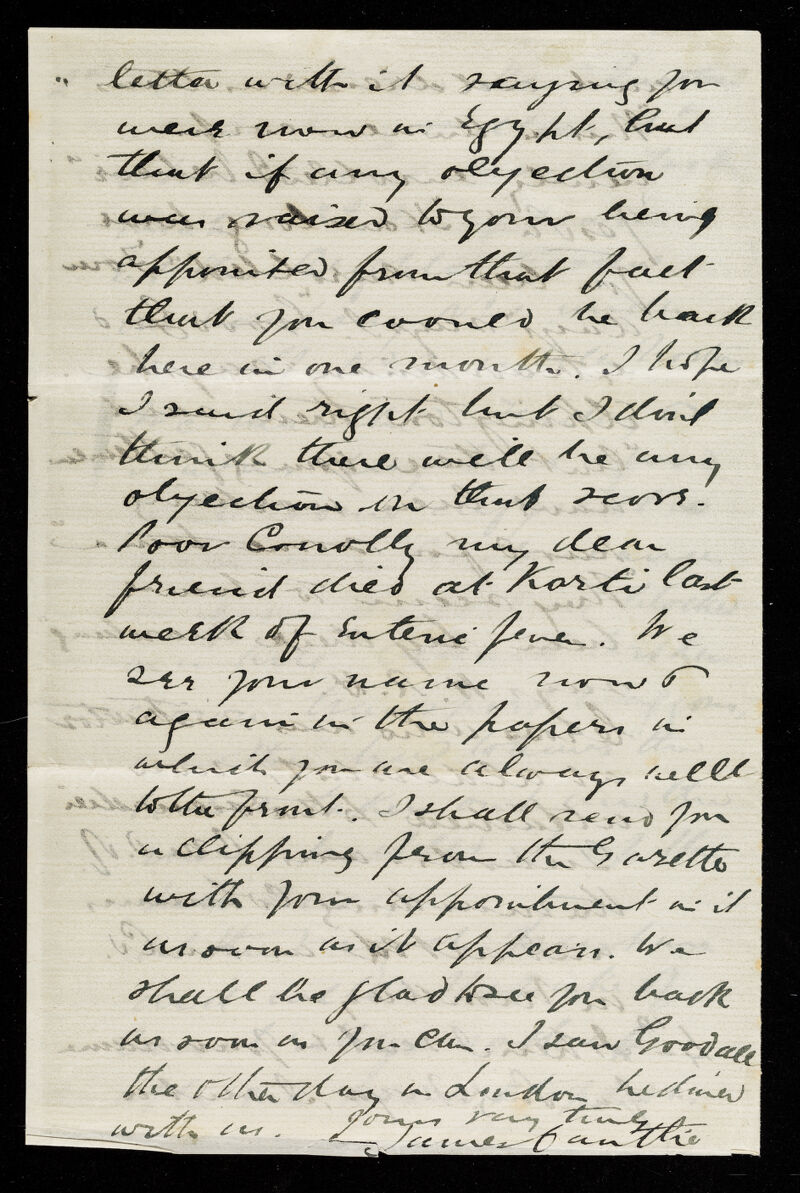 letter with it saying you
were now in Egypt, but
that if any objection
was raised to your being
appointed from that fact
that you could be back
here in one month. I hope
I said right but I don't
think there will be any
objection on that score.
Poor Conolly my dear
friend died at Korti last
week of Enteric fever. We
see your name now &
again in the papers in
which you are always well
to the front. I shall send you
a clipping from the Gazette
with your appointment in it
as soon as it appears. We
shall be glad to see you back
as soon as you can. I saw Goodall
the other day in London he dined
with us. Yours very truly
James Cantlie